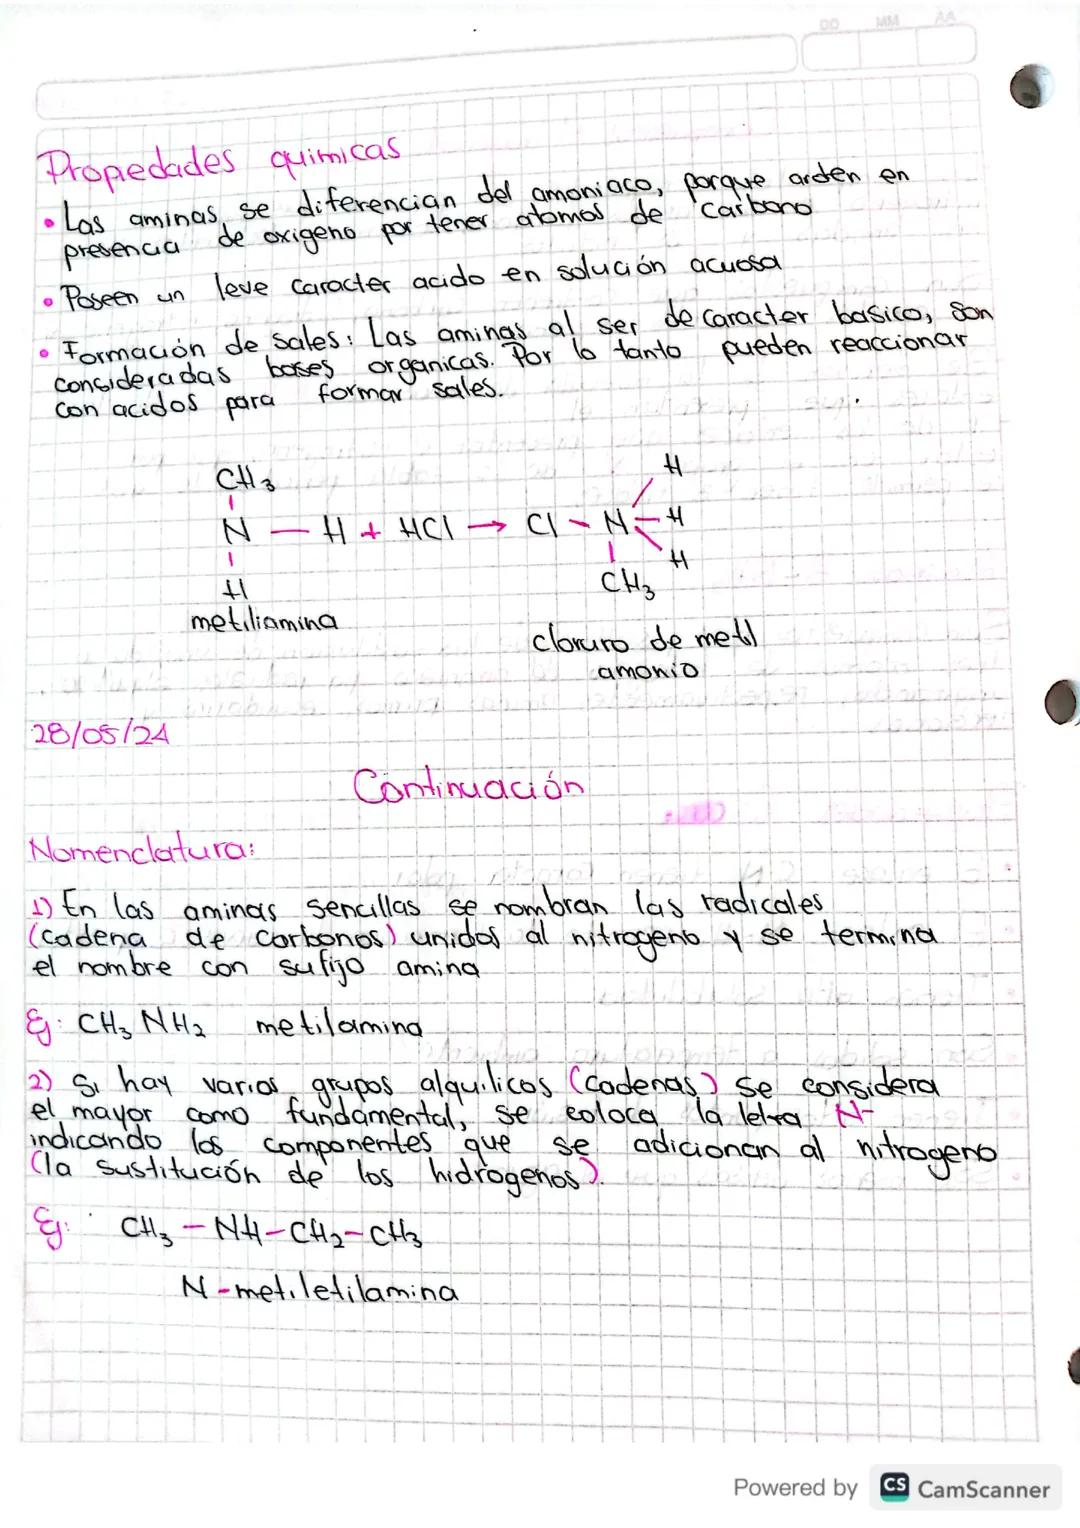 DD MM AA
Propiedades quimicas
• Las aminas se diferencian del amoniaco, porque arden en
presencia de oxigeno por tener atomos de carbono
• Poseen un leve caracter acido en solución acuosa
• Formación de sales: Las aminas al ser de caracter basico, son
consideradas bases organicas. Por lo tanto pueden reaccionar
con acidos para formar sales.
CH3 H
N — H + HCl → Cl - N - H
H CH3 H
metiliamina
cloruro de metil
amonio
28/05/24
Continuación
Nomenclatura:
1) En las aminas sencillas se nombran las radicales
(cadena de carbonos) unidos al nitrogeno y se termina
el nombre con sufijo amina
Ej: CH3 NH2 metilamina
2) Si hay varios grupos alquilicos (cadenas) se considera
el mayor como fundamental, se coloca la letra N-
indicando los componentes que se adicionan al nitrogeno
(la sustitución de los hidrogenos).
Ej: CH3 - NH - CH2 - CH3
N-metiletilamina
Powered by CS CamScanner